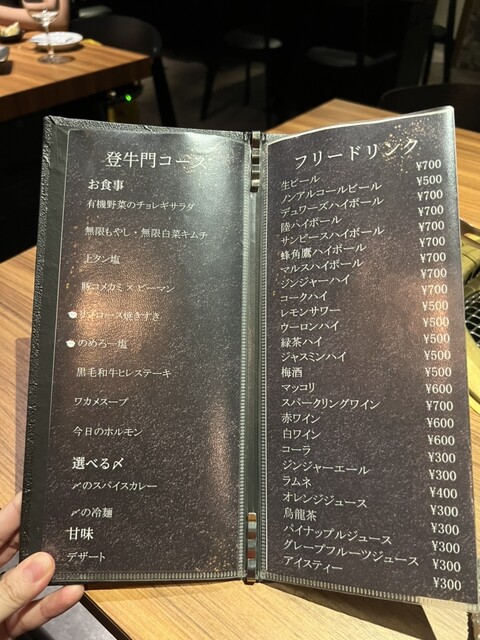 登牛門コース
お食事
有機野菜のチョレギサラダ
無限もやし・無限白菜キムチ
上タン塩
豚コメカミ×ピーマン
サイロース焼きすき
のめろー塩
黒毛和牛ヒレステーキ
ワカメスープ
今日のホルモン
選べる〆
〆のスパイスカレー
〆の冷麺
甘味
デザート
フリードリンク
生ビール ¥700
ノンアルコールビール ¥500
デュワーズハイボール ¥700
陸ハイボール ¥700
サンピースハイボール ¥700
蜂角鷹ハイボール ¥700
マルスハイボール ¥700
ジンジャーハイ ¥700
コークハイ ¥500
レモンサワー ¥500
ウーロンハイ ¥500
緑茶ハイ ¥500
ジャスミンハイ ¥500
梅酒 ¥500
マッコリ ¥600
スパークリングワイン ¥700
赤ワイン ¥600
白ワイン ¥600
コーラ ¥300
ジンジャーエール ¥300
ラムネ ¥400
オレンジジュース ¥300
烏龍茶 ¥300
パイナップルジュース ¥300
グレープフルーツジュース ¥300
アイスティー ¥300